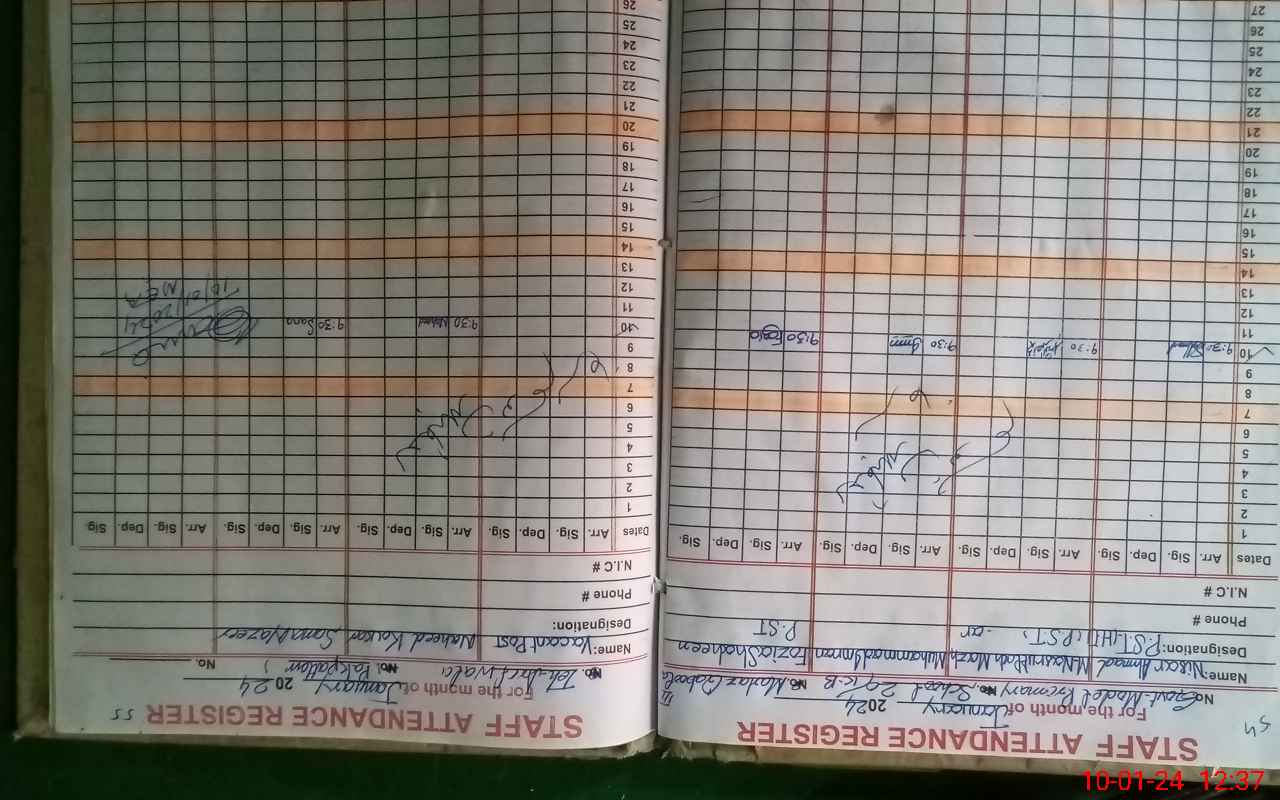 54
STAFF ATTENDANCE REGISTER
For the month of January 2024
No. Govt. Model Primary No. School 29 K.B No. Markaz
Name: Nisar Ahmad M. Nasrullah Mazhar Muhammad Imran Fozia Shaheen
Designation: P.ST, (H), P.ST, P.ST
Phone #
N.I.C #
Dates Arr. Sig. Dep. Sig. Arr. Sig. Dep. Sig. Arr. Sig. Dep. Sig. Arr. Sig. Dep. Sig.
1
2
3
4
5
6
7
8
9
10 9:30 9:30 9:30 9:30 Fozia
11
12
13
14
15
16
17
18
19
20
21
22
23
24
25
26
27
STAFF ATTENDANCE REGISTER 55
For the month of January 2024
No. No. Pakpattan No.
Name: Vaccant Post Naheed Kausar Sams Nazeer
Designation:
Phone #
N.I.C #
Dates Arr. Sig. Dep. Sig. Arr. Sig. Dep. Sig. Arr. Sig. Dep. Sig. Arr. Sig. Dep. Sig.
1
2
3
4
5
6
7
8
9
10 9:30 9:30
11
12
13
14
15
16
17
18
19
20
21
22
23
24
25
26
10/01/2024
MEA
10-01-24 12:37